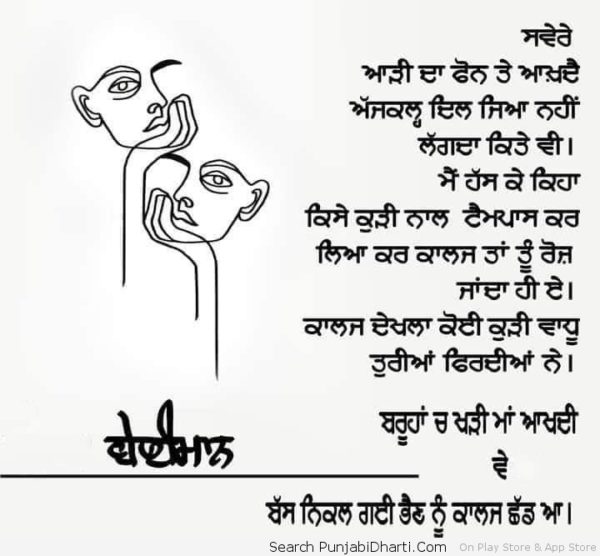 ਸਵੇਰੇ
ਆੜੀ ਦਾ ਫੋਨ ਤੇ ਆਖ਼ਦੈ
ਅੱਜਕਲ੍ਹ ਦਿਲ ਜਿਆ ਨਹੀਂ
ਲੱਗਦਾ ਕਿਤੇ ਵੀ।
ਮੈਂ ਹੱਸ ਕੇ ਕਿਹਾ
ਕਿਸੇ ਕੁੜੀ ਨਾਲ ਟੈਮਪਾਸ ਕਰ
ਲਿਆ ਕਰ ਕਾਲਜ ਤਾਂ ਤੂੰ ਰੋਜ਼
ਜਾਂਦਾ ਹੀ ਏ।
ਕਾਲਜ ਦੇਖਲਾ ਕੋਈ ਕੁੜੀ ਵਾਧੂ
ਤੁਰੀਆਂ ਫਿਰਦੀਆਂ ਨੇ।
ਬਰੂਹਾਂ ਚ ਖੜੀ ਮਾਂ ਆਖਦੀ
ਵੇ
ਬੱਸ ਨਿਕਲ ਗਈ ਭੈਣ ਨੂੰ ਕਾਲਜ ਛੱਡ ਆ।
ਬੇਈਮਾਨ
Search PunjabiDharti.Com On Play Store & App Store